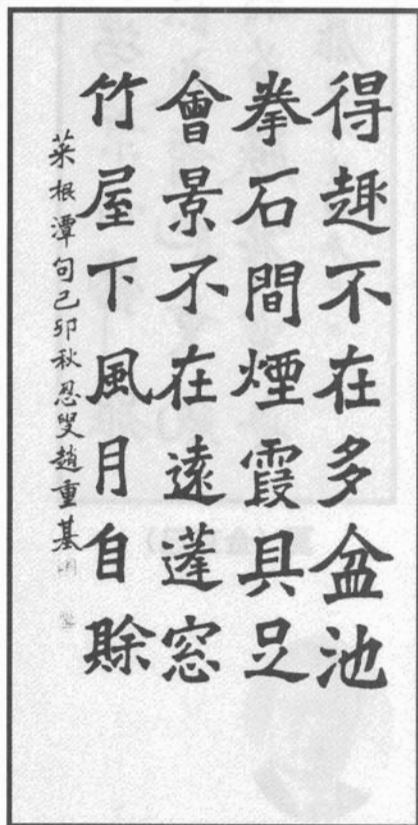 得趣不在多盆池
拳石間煙霞具足
會景不在遠蓬窓
竹屋下風月自賖
菜根潭句己卯秋忍叟趙重基